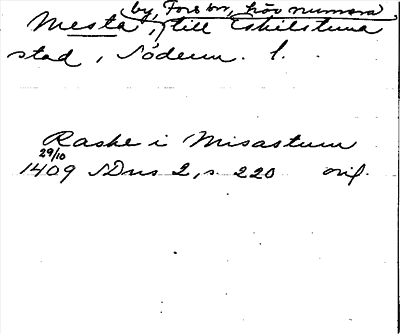 by, Fors sn, hör numera
Mesta, till Eskilstuna
stad, Söderm. l.
Raske i Misastum
29/10
1409 SDns 2, s. 220 orig.